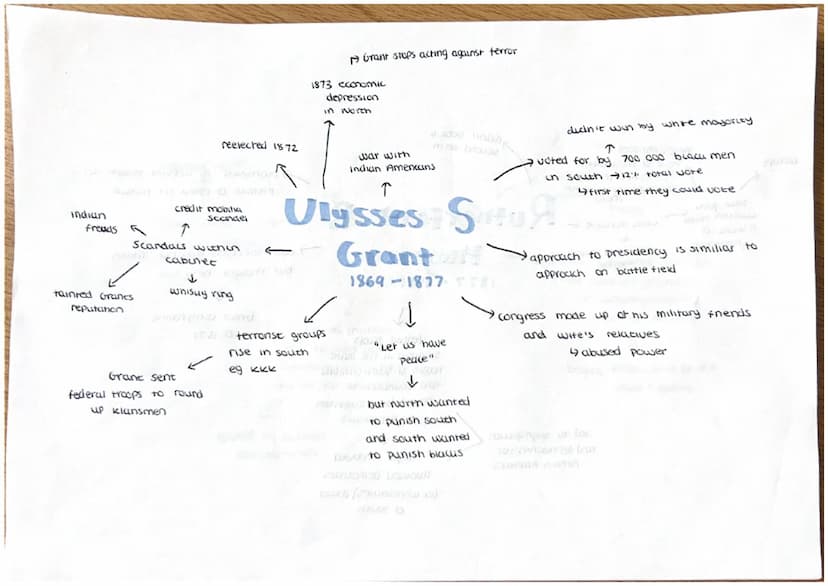 ↱ Grant stops acting against terror
1873 economic
depression
in North
reelected 1872
war with
Indian Americans
didn't win by white majority
voted for by 700 000 black men
in south → 12% total vote
↳ first time they could vote
Indian
frauds
credit mobilia
scandel
Scandals within
cabinet
tainted Grants
reputation
whisky ring
Ulysses S
Grant
1869 - 1877
approach to presidency is similiar to
approach on battlefield
congress made up of his military friends
and wife's relatives
↳ abused power
terrorist groups
rise in south
eg KKK
Grant sent
federal troops to round
up klansmen
"Let us have
peace"
but north wanted
to punish south
and south wanted
to punish blacks